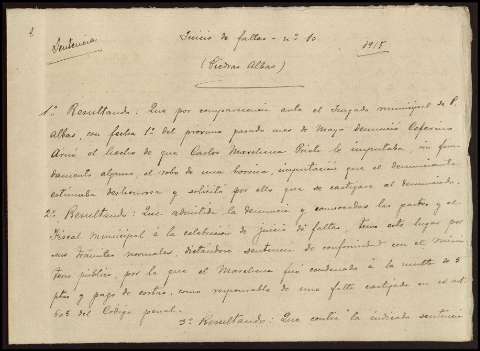 Sentencia
Juicio de faltas - nº 10
1915
(Piedras Albas)
1º Resultando: Que por comparecencia ante el Juzgado municipal de P.
Albas, con fecha 1º del próximo pasado mes de Mayo denunció Ceferino
el hecho de que Carlos Marchena le imputaba, sin fun
damento alguno, el robo de una borrica, imputación que el denunciante
estimaba deshonrosa y solicitó por ello que se castigara al denunciado.
2º Resultando: Que admitida la denuncia y convocadas las partes y el
Fiscal municipal á la celebración de juicio de faltas, tuvo este lugar por
sus trámites normales, dictándose sentencia de conformidad con el minis
terio público, por la que el Marchena fué condenado á la multa de 5
ptas y pago de costas, como responsable de una falta castigada en el art
605 del Código penal.
3º Resultando: Que contra la indicada sentencia